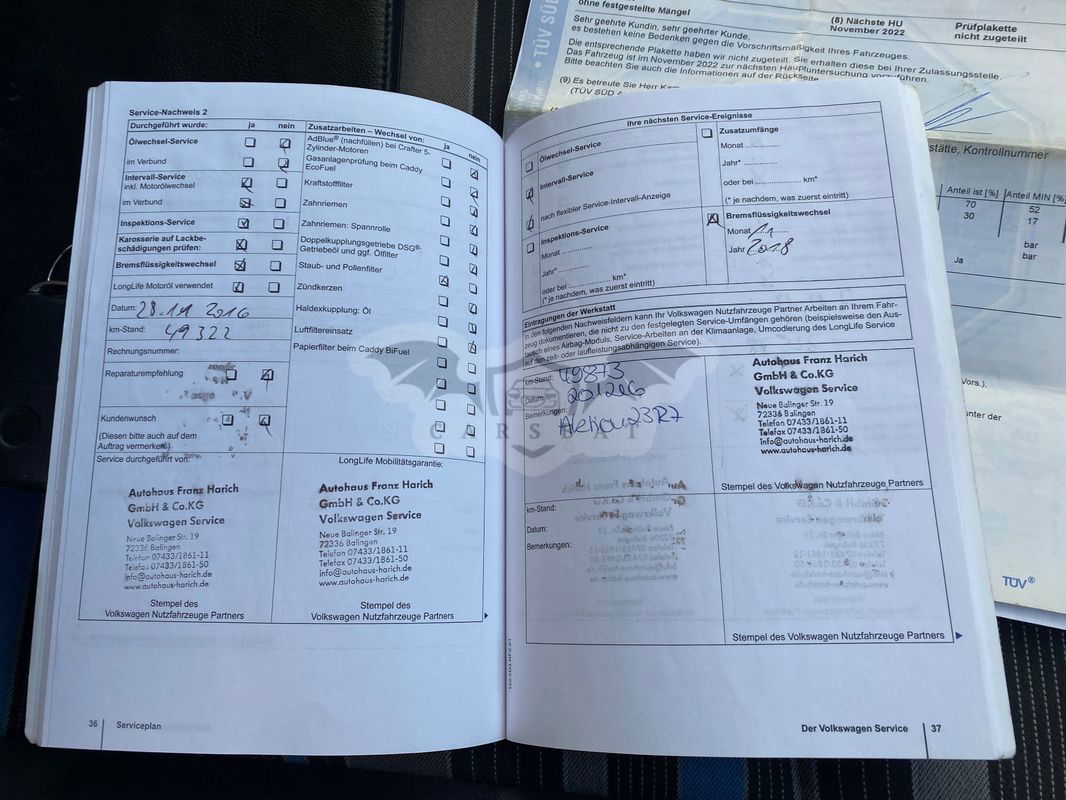 ohne festgestellte Mängel
Sehr geehrte Kundin, sehr geehrter Kunde,
es bestehen keine Bedenken gegen die Vorschriftsmäßigkeit Ihres Fahrzeuges.
(8) Nächste HU
November 2022
Prüfplakette
nicht zugeteilt
Die entsprechende Plakette haben wir nicht zugeteilt. Sie erhalten diese bei Ihrer Zulassungsstelle.
Das Fahrzeug ist im November 2022 zur nächsten Hauptuntersuchung vorzuführen.
Bitte beachten Sie auch die Informationen auf der Rückseite.
(9) Es betreute Sie Herr
(TÜV SÜD
TÜV SÜD
Kontrollnummer
Anteil ist [%] Anteil MIN [%]
70 52
30 17
bar
Ja bar
Vors.).
unter der
TÜV®
Service-Nachweis 2
Durchgeführt wurde: ja nein
Ölwechsel-Service
im Verbund
Intervall-Service
inkl. Motorölwechsel
im Verbund
Inspektions-Service
Karosserie auf Lackbe-
schädigungen prüfen:
Bremsflüssigkeitswechsel
LongLife Motoröl verwendet
Datum: 28.11 2016
km-Stand: 49322
Rechnungsnummer:
Reparaturempfehlung
Kundenwunsch
(Diesen bitte auch auf dem
Auftrag vermerken!)
Zusatzarbeiten – Wechsel von: ja nein
AdBlue® (nachfüllen) bei Crafter 5-
Zylinder-Motoren
Gasanlagenprüfung beim Caddy
EcoFuel
Kraftstofffilter
Zahnriemen
Zahnriemen: Spannrolle
Doppelkupplungsgetriebe DSG®:
Getriebeöl und ggf. Ölfilter
Staub- und Pollenfilter
Zündkerzen
Haldexkupplung: Öl
Luftfiltereinsatz
Papierfilter beim Caddy BiFuel
Service durchgeführt von:
Autohaus Franz Harich
GmbH & Co.KG
Volkswagen Service
Neue Balinger Str. 19
72336 Balingen
Telefon 07433/1861-11
Telefax 07433/1861-50
info@autohaus-harich.de
Stempel des
Volkswagen Nutzfahrzeuge Partners
LongLife Mobilitätsgarantie:
Autohaus Franz Harich
GmbH & Co.KG
Volkswagen Service
Neue Balinger Str. 19
72336 Balingen
Telefon 07433/1861-11
Telefax 07433/1861-50
info@autohaus-harich.de
www.autohaus-harich.de
Stempel des
Volkswagen Nutzfahrzeuge Partners
36 Serviceplan
Ihre nächsten Service-Ereignisse
Ölwechsel-Service
Intervall-Service
nach flexibler Service-Intervall-Anzeige
Inspektions-Service
Monat ............
Jahr* ..............
oder bei .................. km*
(* je nachdem, was zuerst eintritt)
Zusatzumfänge
Monat ............
Jahr* ..............
oder bei .................. km*
(* je nachdem, was zuerst eintritt)
Bremsflüssigkeitswechsel
Monat 11
Jahr 2018
Eintragungen der Werkstatt
In den folgenden Nachweisfeldern kann Ihr Volkswagen Nutzfahrzeuge Partner Arbeiten an Ihrem Fahr-
zeug dokumentieren, die nicht zu den festgelegten Service-Umfängen gehören (beispielsweise den Aus-
tausch eines Airbag-Moduls, Service-Arbeiten an der Klimaanlage, Umcodierung des LongLife Service
auf den zeit- oder laufleistungsabhängigen Service).
km-Stand: 49873
Datum: 201216
Bemerkungen: Aktion 23R7
Autohaus Franz Harich
GmbH & Co.KG
Volkswagen Service
Neue Balinger Str. 19
72336 Balingen
Telefon 07433/1861-11
Telefax 07433/1861-50
info@autohaus-harich.de
www.autohaus-harich.de
Stempel des Volkswagen Nutzfahrzeuge Partners
km-Stand:
Datum:
Bemerkungen:
Stempel des Volkswagen Nutzfahrzeuge Partners
Der Volkswagen Service 37
CARSBAT